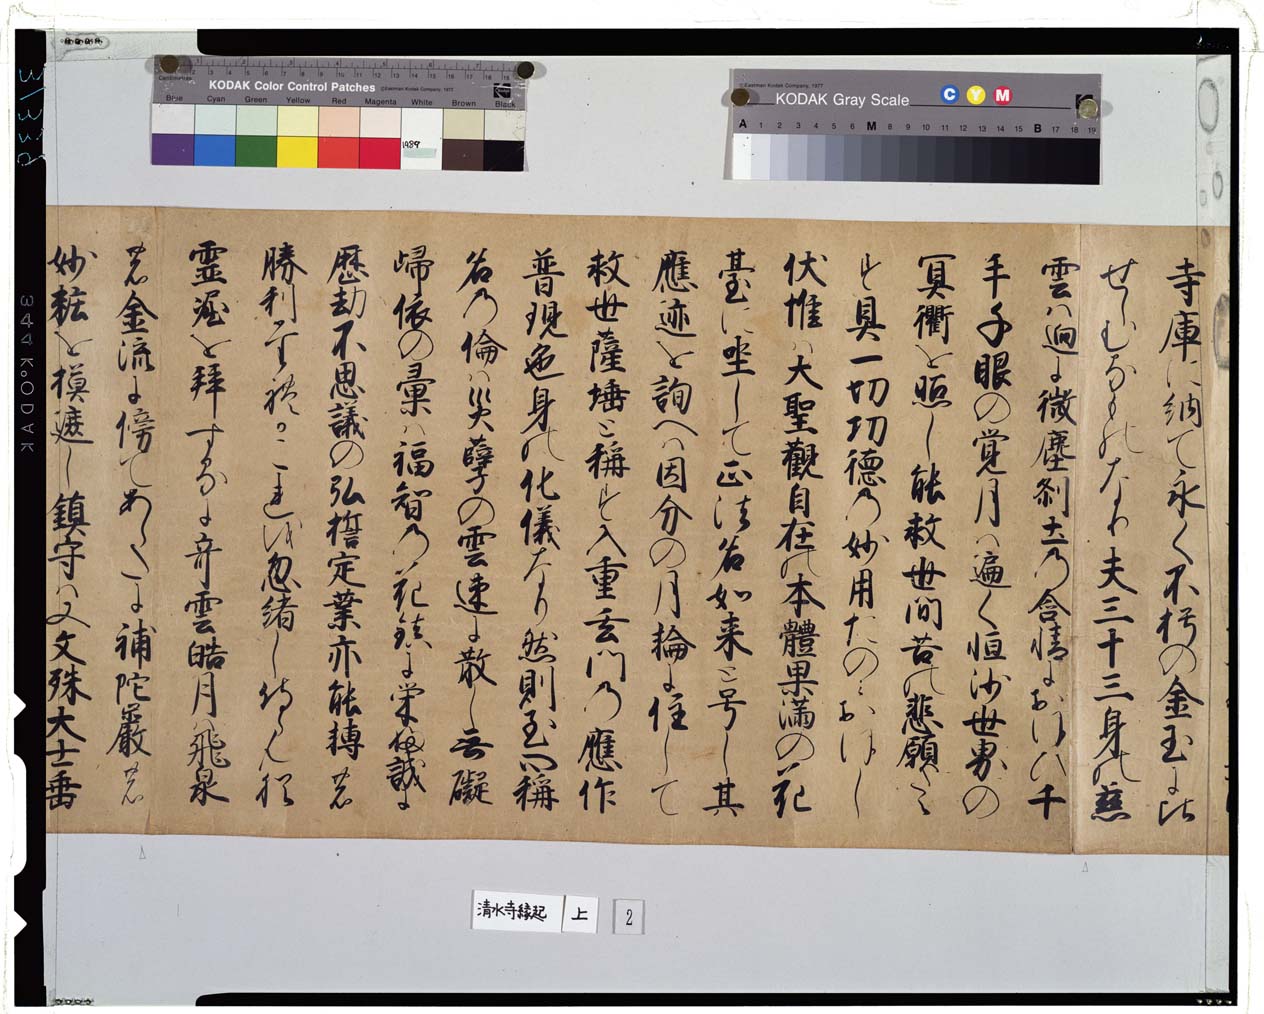 KODAK Color Control Patches
©Eastman Kodak Company, 1977
Blue Cyan Green Yellow Red Magenta White Brown Black
1989
©Eastman Kodak Company, 1977
KODAK Gray Scale
C Y M
A 1 2 3 4 5 6 M 8 9 10 11 12 13 14 15 B 17 18 19
寺庫に納て永く不朽の金玉に比
せしむるものなり夫三十三身の慈
雲は迥に微塵刹土の含情におほひ千
手千眼の覚月は遍く恒沙世界の
冥衢を照し能救世間苦の悲願
を具一切功徳の妙用たのみ
伏惟は大聖觀自在の本體果滿の花
臺に坐して正法名如来と号し其
應迹を詢へは因分の月輪に住して
救世薩埵と称す入重玄門の應作
普現色身の化儀なり然則至心稱
名の倫は災孽の雲速に散し無礙
帰依の彙は福智の花鎮に栄
歴劫不思議の弘誓定業亦能轉の
勝利
靈崛を拜するに奇雲皓月は飛泉
の金流に傍てあらたに補陀巖の
妙粧を模遷し鎮守は又文殊大士垂
清水寺縁起
上
2